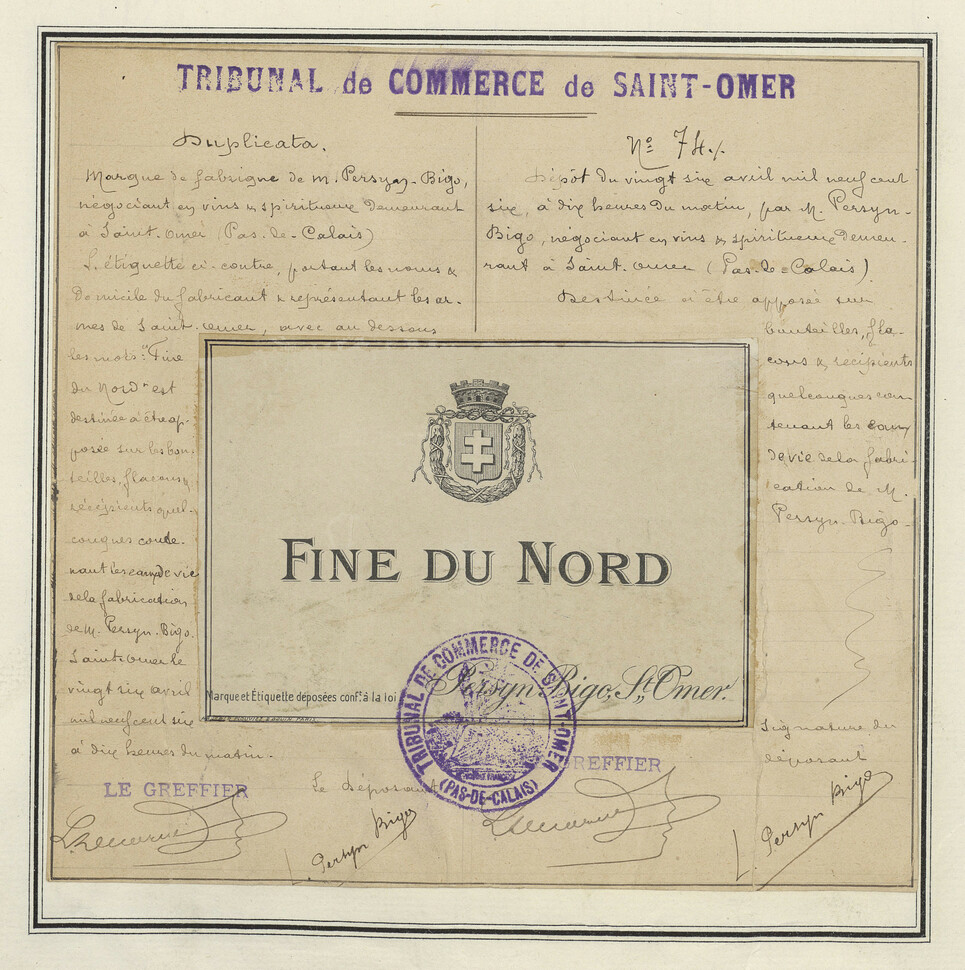 TRIBUNAL de COMMERCE de SAINT-OMER
Duplicata.
Marque de fabrique de M. Persyn-Bigo,
négociant en vins & spiritueux demeurant
à Saint-Omer (Pas-de-Calais)
L'étiquette ci-contre, portant les noms &
domicile du fabricant & représentant les ar-
mes de Saint-Omer, avec au dessous
les mots "Fine
du Nord" est
destinée à être ap-
posée sur les bou-
teilles, flacons &
récipients quel-
conques conte-
nant les eaux de vie
de la fabrication
de M. Persyn-Bigo.
Saint-Omer le
vingt six avril
mil neuf cent six
à dix heures du matin.
LE GREFFIER
Le déposant
L. Persyn Bigo
No 74
Dépôt du vingt six avril mil neuf cent
six, à dix heures du matin, par M. Persyn-
Bigo, négociant en vins & spiritueux demeu-
rant à Saint-Omer (Pas-de-Calais).
Destinée à être apposée sur
bouteilles, fla-
cons & récipients
quelconques con-
tenant les eaux
de vie de la fabri-
cation de M.
Persyn-Bigo-
Signature du
déposant
GREFFIER
L. Persyn Bigo
FINE DU NORD
Marque et Étiquette déposées conft à la loi
Persyn-Bigo, St Omer.
TRIBUNAL DE COMMERCE DE SAINT-OMER
(PAS-DE-CALAIS)